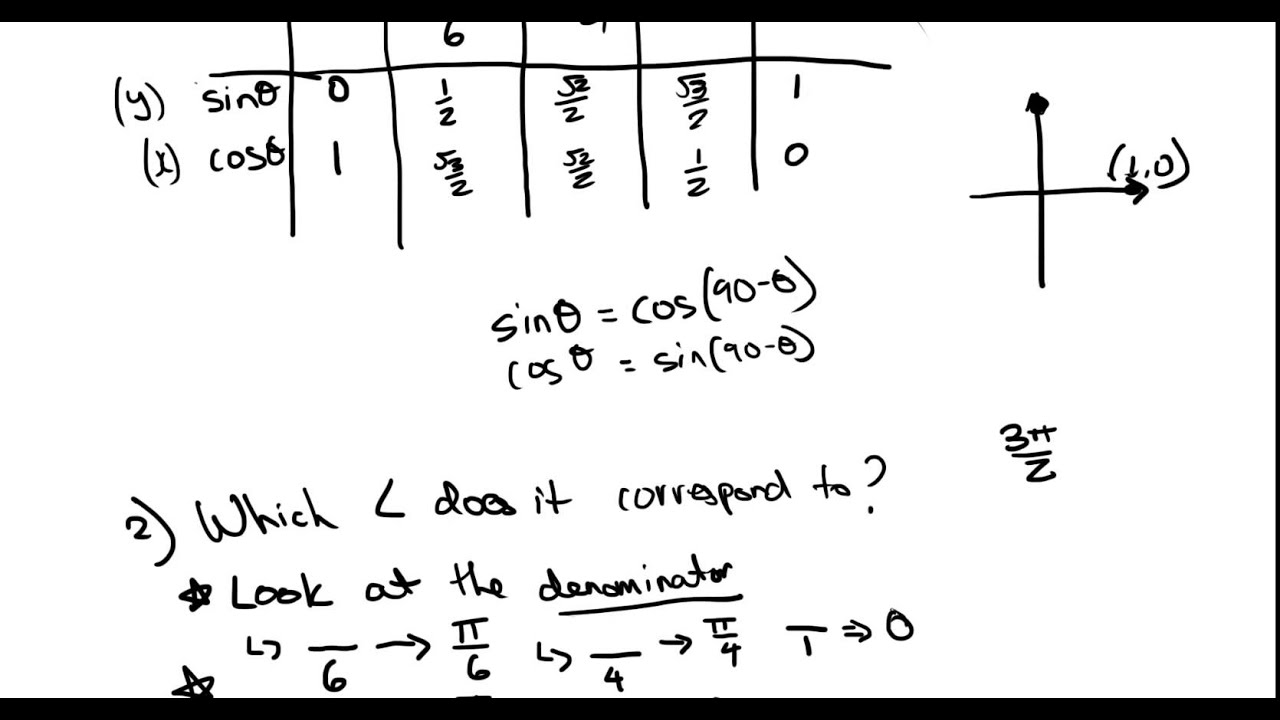 6
(y) sinθ 0 1/2 √2/2 √3/2 1
(x) cosθ 1 √3/2 √2/2 1/2 0
(1,0)
sinθ = cos(90-θ)
cosθ = sin(90-θ)
3π/2
2) Which ∠ does it correspond to?
★ Look at the denominator
↳ _/6 → π/6 ↳ _/4 → π/4 _/1 ⇒ 0
★